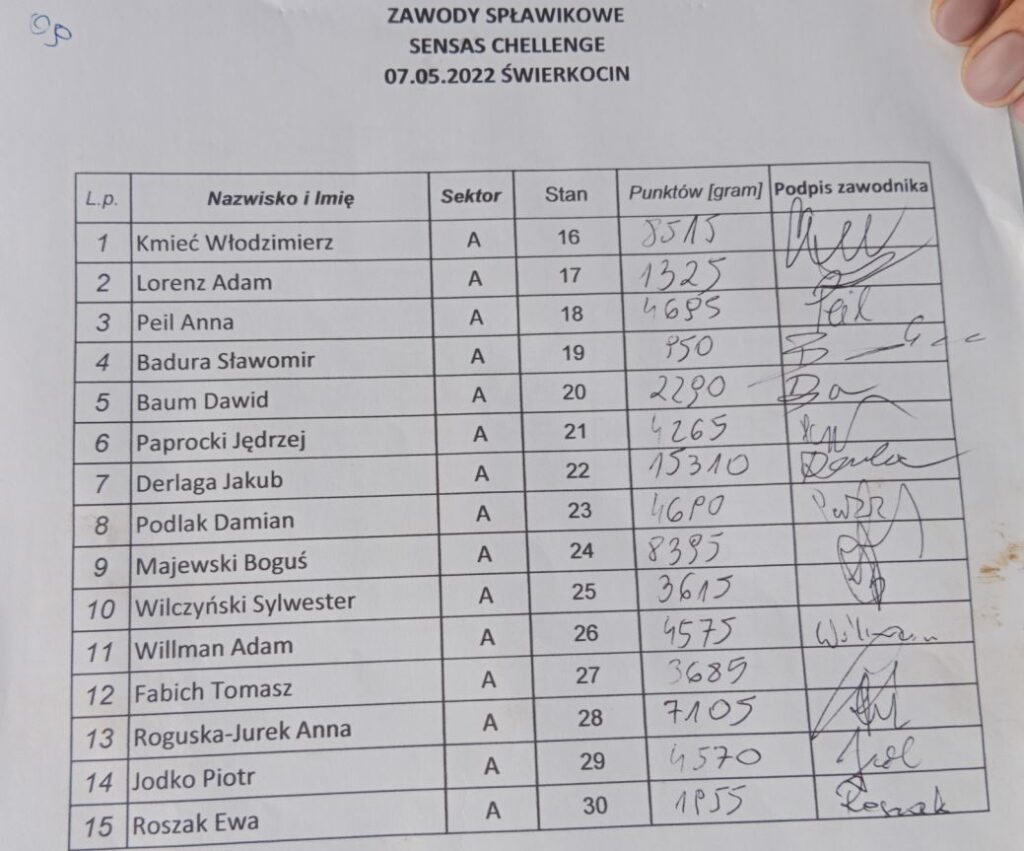 ZAWODY SPŁAWIKOWE
SENSAS CHELLENGE
07.05.2022 ŚWIERKOCIN
L.p. Nazwisko i Imię Sektor Stan Punktów [gram] Podpis zawodnika
1 Kmieć Włodzimierz A 16 8515
2 Lorenz Adam A 17 1325
3 Peil Anna A 18 4695 Peil
4 Badura Sławomir A 19 950
5 Baum Dawid A 20 2290 Ba
6 Paprocki Jędrzej A 21 4265
7 Derlaga Jakub A 22 15310
8 Podlak Damian A 23 4690
9 Majewski Boguś A 24 8395
10 Wilczyński Sylwester A 25 3615
11 Willman Adam A 26 4575
12 Fabich Tomasz A 27 3685
13 Roguska-Jurek Anna A 28 7105
14 Jodko Piotr A 29 4570
15 Roszak Ewa A 30 1955 Roszak